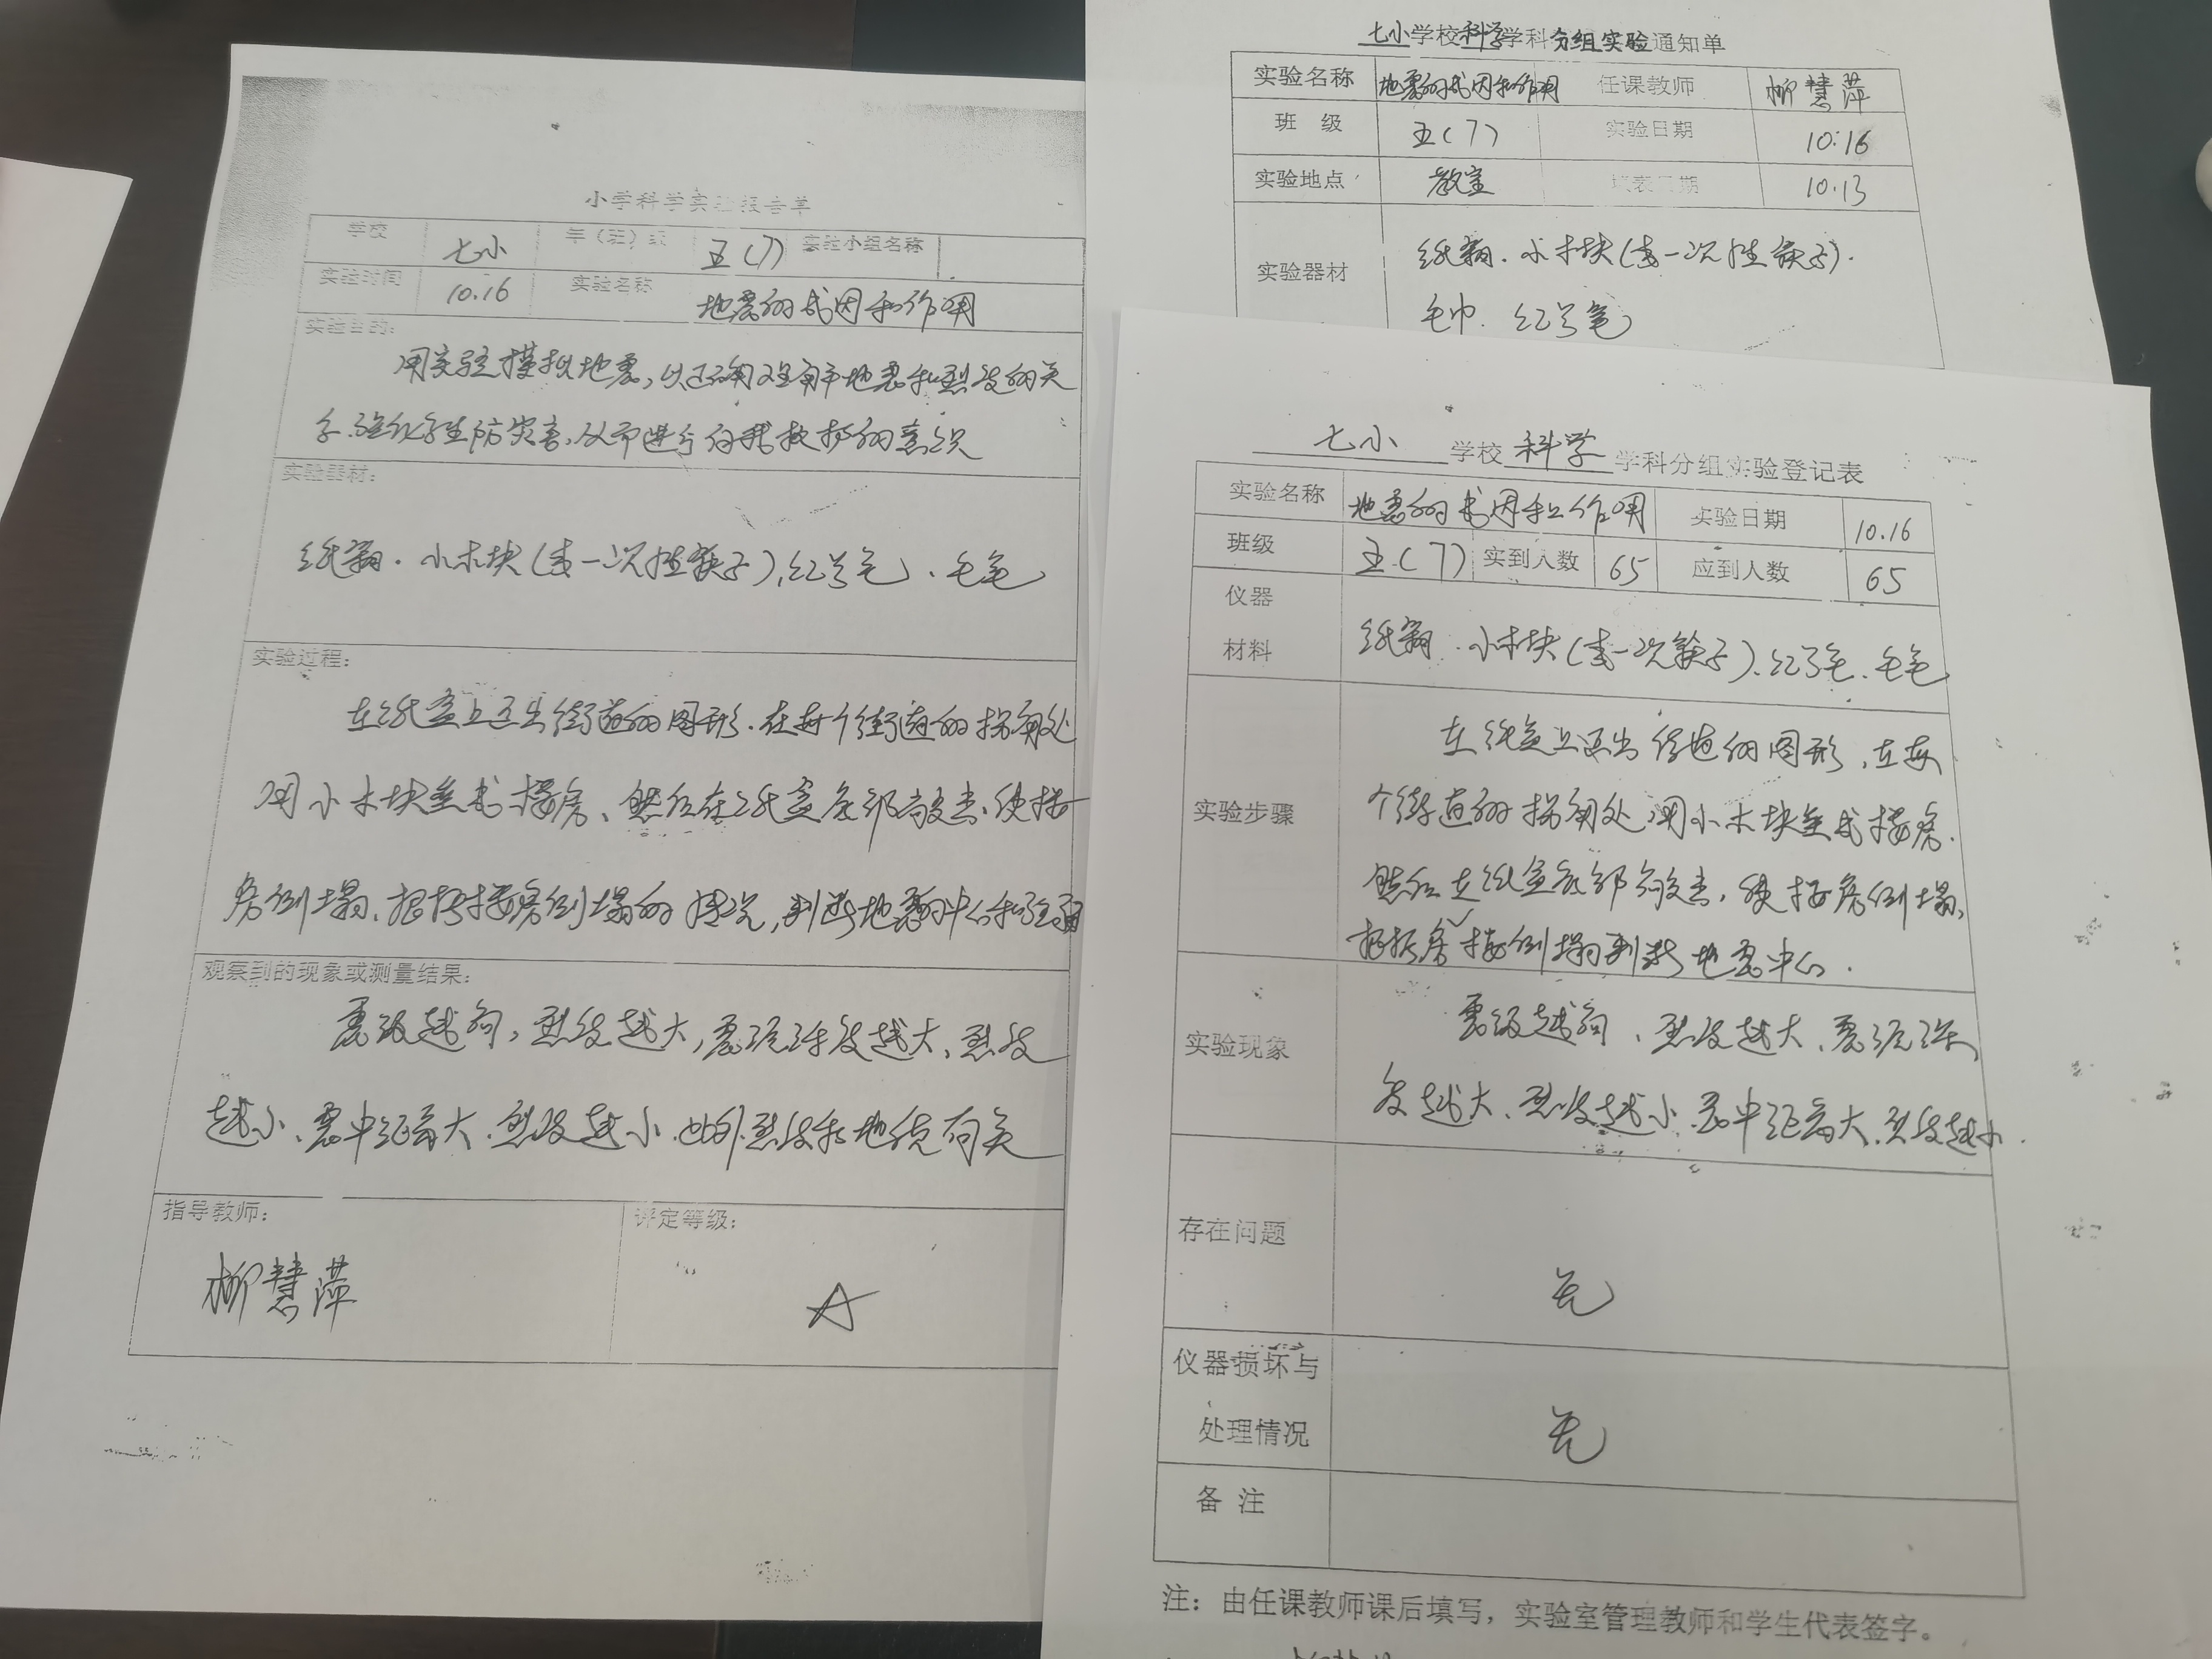 小学科学实验报告单
学校 七小 年(班)级 五(7) 实验小组名称
实验时间 10.16 实验名称 地震的成因和作用
实验目的:
用实验模拟地震,以正确理解地震和烈度的关
系.强化学生防灾害,从而进行自我救护的意识
实验器材:
纸箱.小木块(或一次性筷子),红
实验过程:
在纸盒上画出街道的图形.在每个街道的拐角处
用小木块垒成楼房、然后在纸盒底部敲击,使楼
房倒塌、根据楼房倒塌的情况,判断地震中心和强弱
观察到的现象或测量结果:
震级越高,烈度越大,震源深度越大、烈度
越小、震中距离大.烈度越小.此外烈度和地质有关
指导教师:
评定等级:
柳慧萍
A
七小学校科学学科分组实验通知单
实验名称 地震的成因和作用 任课教师 柳慧萍
班 级 五(7) 实验日期 10:16
实验地点 教室 填表日期 10.13
实验器材
纸箱.小木块(或一次性筷子).
毛巾.
七小 学校 科学 学科分组实验登记表
实验名称 地震的成因和作用 实验日期 10.16
班级 五(7) 实到人数 65 应到人数 65
仪器
材料
纸箱.小木块(或一次筷子)、
实验步骤
在纸盒上画出街道的图形.在每
个街道的拐角处.用小木块垒成楼房.
然后在纸盒底部敲击,使楼房倒塌,
根据房楼倒塌判断地震中心.
实验现象
震级越高、烈度越大、震源深
度越大、烈度越小.震中距离大.烈度越小.
存在问题
无
仪器损坏与
处理情况
无
备 注
注:由任课教师课后填写,实验室管理教师和学生代表签字。